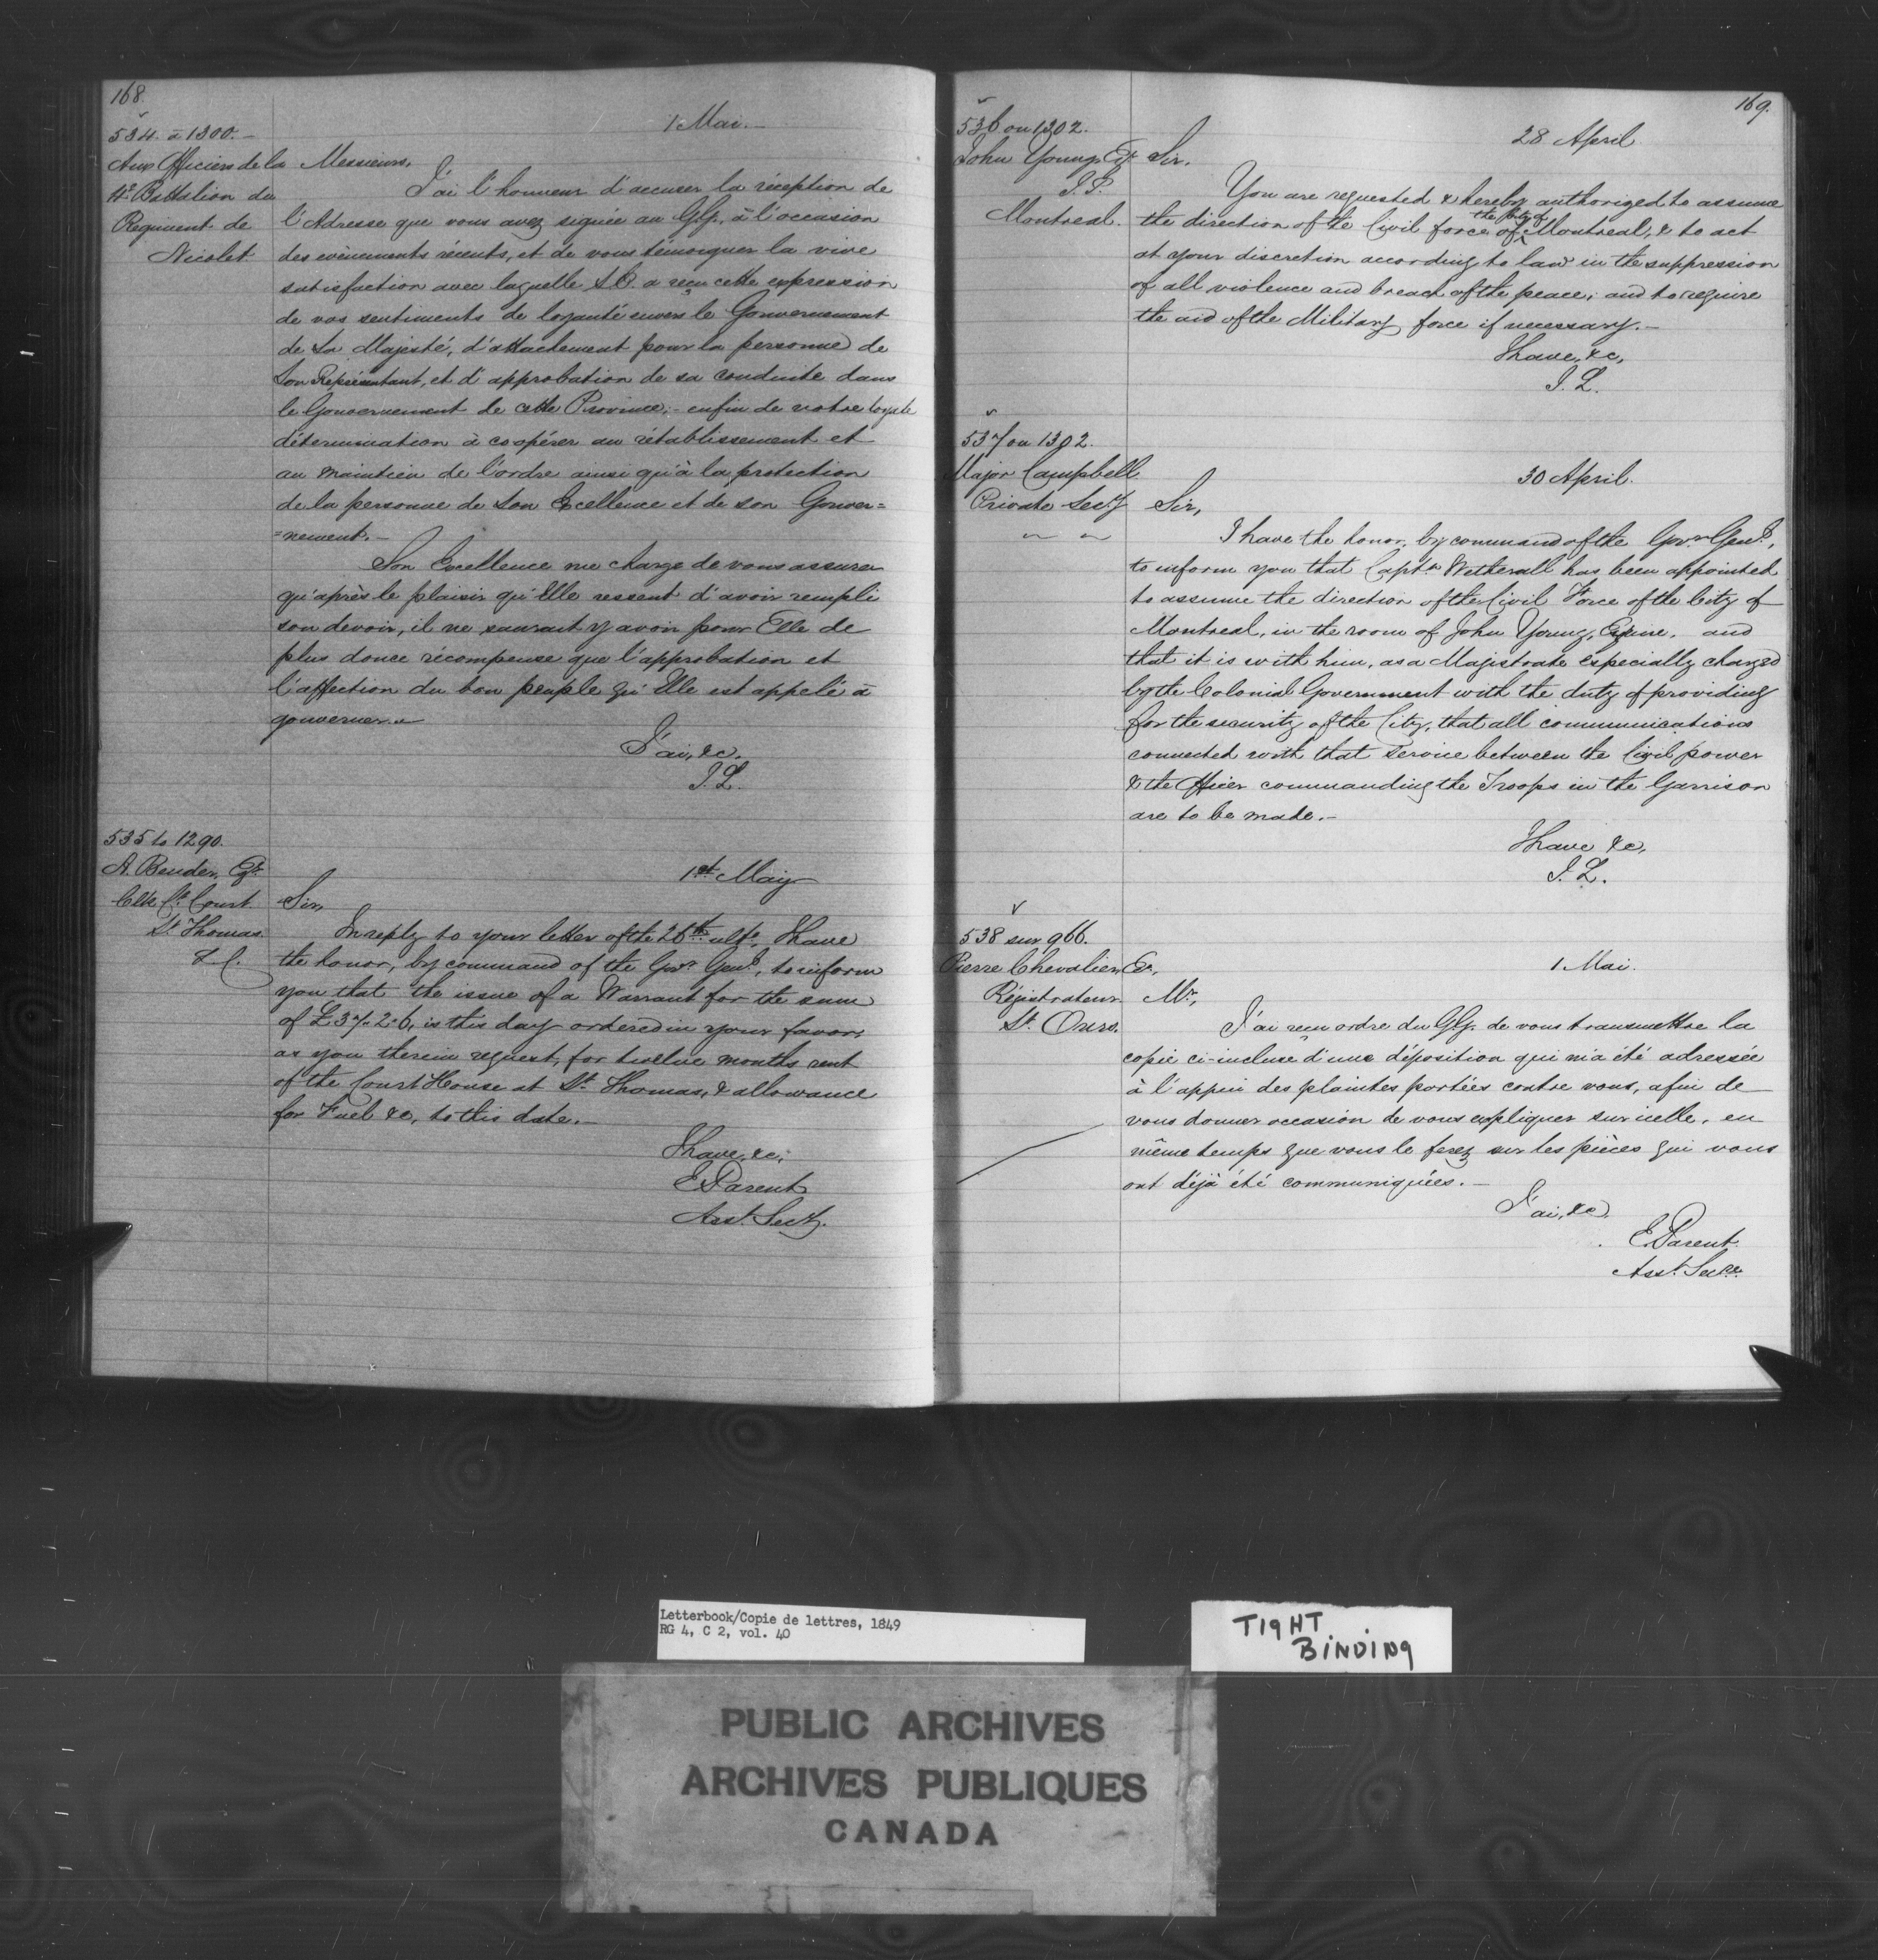 168.
534. à 1300.-
Aux Officiers de la
4e Battalion du
Regiment de
Nicolet
1 Mai.-
Messieurs,
J'ai l'honneur d'accuser la réception de
l'Adresse que vous avez signée au GG., à l'occasion
des evènements récents, et de vous témoigner la vive
satisfaction avec laquelle S.E. a reçu cette expression
de vos sentiments de loyauté envers le Gouvernement
de Sa Majesté, d'attachement pour la personne de
Son Représentant, et d'approbation de sa conduite dans
le Gouvernement de cette Province;- enfin de votre loyale
détermination à coopérer au rétablissement et
au maintien de l'ordre ainsi qu'à la protection
de la personne de Son Excellence et de son Gouver=
=nement.-
Son Excellence me charge de vous assurer
qu'après le plaisir qu'Elle ressent d'avoir rempli
son devoir, il ne saurait y avoir pour Elle de
plus douce récompense que l'approbation et
l'affection du bon peuple qu'Elle est appelé à
gouverner.
J'ai, &c.
J.L.
535 to 1290.
A. Bender, Esqr.
Clk Ct. Court
St. Thomas.
1st May
Sir,
In reply to your letter of the 26th ulto., I have
the honor, by command of the Govr. Genl., to inform
you that the issue of a Warrant for the sum
of £37-2-6, is this day ordered in your favor,
as you therein request, for twelve months rent
of the Court House at St. Thomas, & allowance
for Fuel &c, to this date.-
I have, &c,
E Parent
Asst. Secy.
169.
536 on 1302.
John Young, Esqr
J.P.
Montreal.
28 April
Sir.
You are requested & hereby authorized to assume
the direction of the Civil force of the City of Montreal, & to act
at your discretion according to law in the suppression
of all violence and breach of the peace; and to require
the aid of the Military force if necessary.-
I have, &c,
J. L.
537 on 1302.
Major Campbell
Private Secy
30 April.
Sir,
I have the honor, by command of the Govr. Genl.,
to inform you that Captn. Wetherall has been appointed
to assume the direction of the Civil Force of the City of
Montreal, in the room of John Young, Esquire, and
that it is with him, as a Magistrate especially charged
by the Colonial Government with the duty of providing
for the security of the City, that all communications
connected with that service between the Civil power
& the Officer commanding the Troops in the Garrison
are to be made.-
I have &c,
J. L.
538 sur 966.
Pierre Chevalier, Er,
Régistrateur
St. Ours.
1 Mai.
Mr,
J'ai reçu ordre du GG. de vous transmettre la
copie ci-incluse d'une déposition qui m'a été adressée
à l'appui des plaintes portées contre vous, afin de
vous donner occasion de vous expliquer sur icelle, en
même temps que vous le ferez sur les pièces qui vous
ont déjà été communiquées.-
J'ai, &c,
E. Parent
Asst. Secre.
Letterbook/Copie de lettres, 1849
RG 4, C 2, vol. 40
TIGHT
BINDING
PUBLIC ARCHIVES
ARCHIVES PUBLIQUES
CANADA